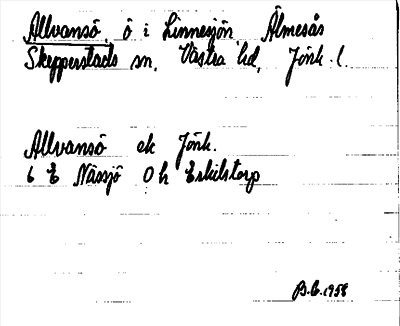 Allvansö, ö i Linnesjön Älmesås
Skepperstads sn, Västra hd, Jönk. l.
Allvansö ek Jönk.
6 E Nässjö Oh Eskilstorp
B.E. 1958